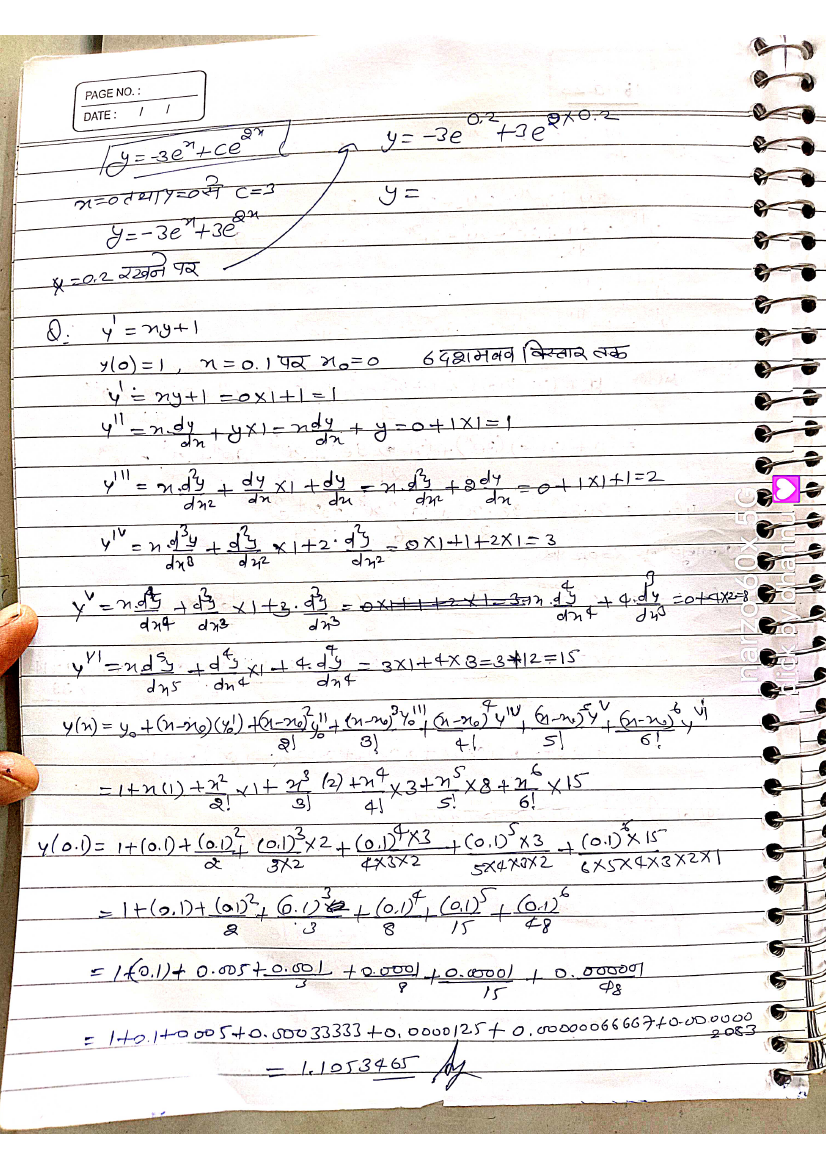 PAGE NO. :
DATE : / /
y = -3eˣ + Ce²ˣ
x=0 तथा y=0 से C=3
y = -3eˣ + 3e²ˣ
x = 0.2 रखने पर
y = -3e^0.2 + 3e^2×0.2
y =
Q: y' = xy+1
y(0) = 1, x = 0.1 पर x₀=0 6 दशमलव विस्तार तक
y' = xy+1 = 0×1+1 = 1
y'' = x.dy/dx + y×1 = x dy/dx + y = 0+1×1 = 1
y''' = x.d²y/dx² + dy/dx ×1 + dy/dx = x.d²y/dx² + 2 dy/dx = 0+1×1+1=2
y^IV = x.d³y/dx³ + d²y/dx² ×1+2. d²y/dx² = 0×1+1+2×1 = 3
y^V = x.d⁴y/dx⁴ + d³y/dx³ ×1+3. d³y/dx³ = 0×1+1+2×1=3 = x.d⁴y/dx⁴ + 4.d³y/dx³ = 0+4×2=8
y^VI = x d⁵y/dx⁵ + d⁴y/dx⁴ ×1 + 4.d⁴y/dx⁴ = 3×1+4×3=3+12=15
y(x) = y₀ + (x-x₀)(y₀') + (x-x₀)²/2! y₀'' + (x-x₀)³/3! y₀''' + (x-x₀)⁴/4! y^IV + (x-x₀)⁵/5! y^V + (x-x₀)⁶/6! y^VI
= 1+x(1) + x²/2! ×1 + x³/3! (2) + x⁴/4! ×3 + x⁵/5! ×8 + x⁶/6! ×15
y(0.1) = 1+(0.1) + (0.1)²/2 + (0.1)³×2/3×2 + (0.1)⁴×3/4×3×2 + (0.1)⁵×3/5×4×3×2 + (0.1)⁶×15/6×5×4×3×2×1
= 1+(0.1) + (0.1)²/2 + (0.1)³/3 + (0.1)⁴/8 + (0.1)⁵/15 + (0.1)⁶/48
= 1+(0.1)+ 0.005 + 0.001/3 + 0.0001/8 + 0.00001/15 + 0.000001/48
= 1+0.1+0.005+0.00033333+0.0000125+0.00000066667+0.00000002083
= 1.1053465 Ans
narzo 60x 5G
click by bhannu